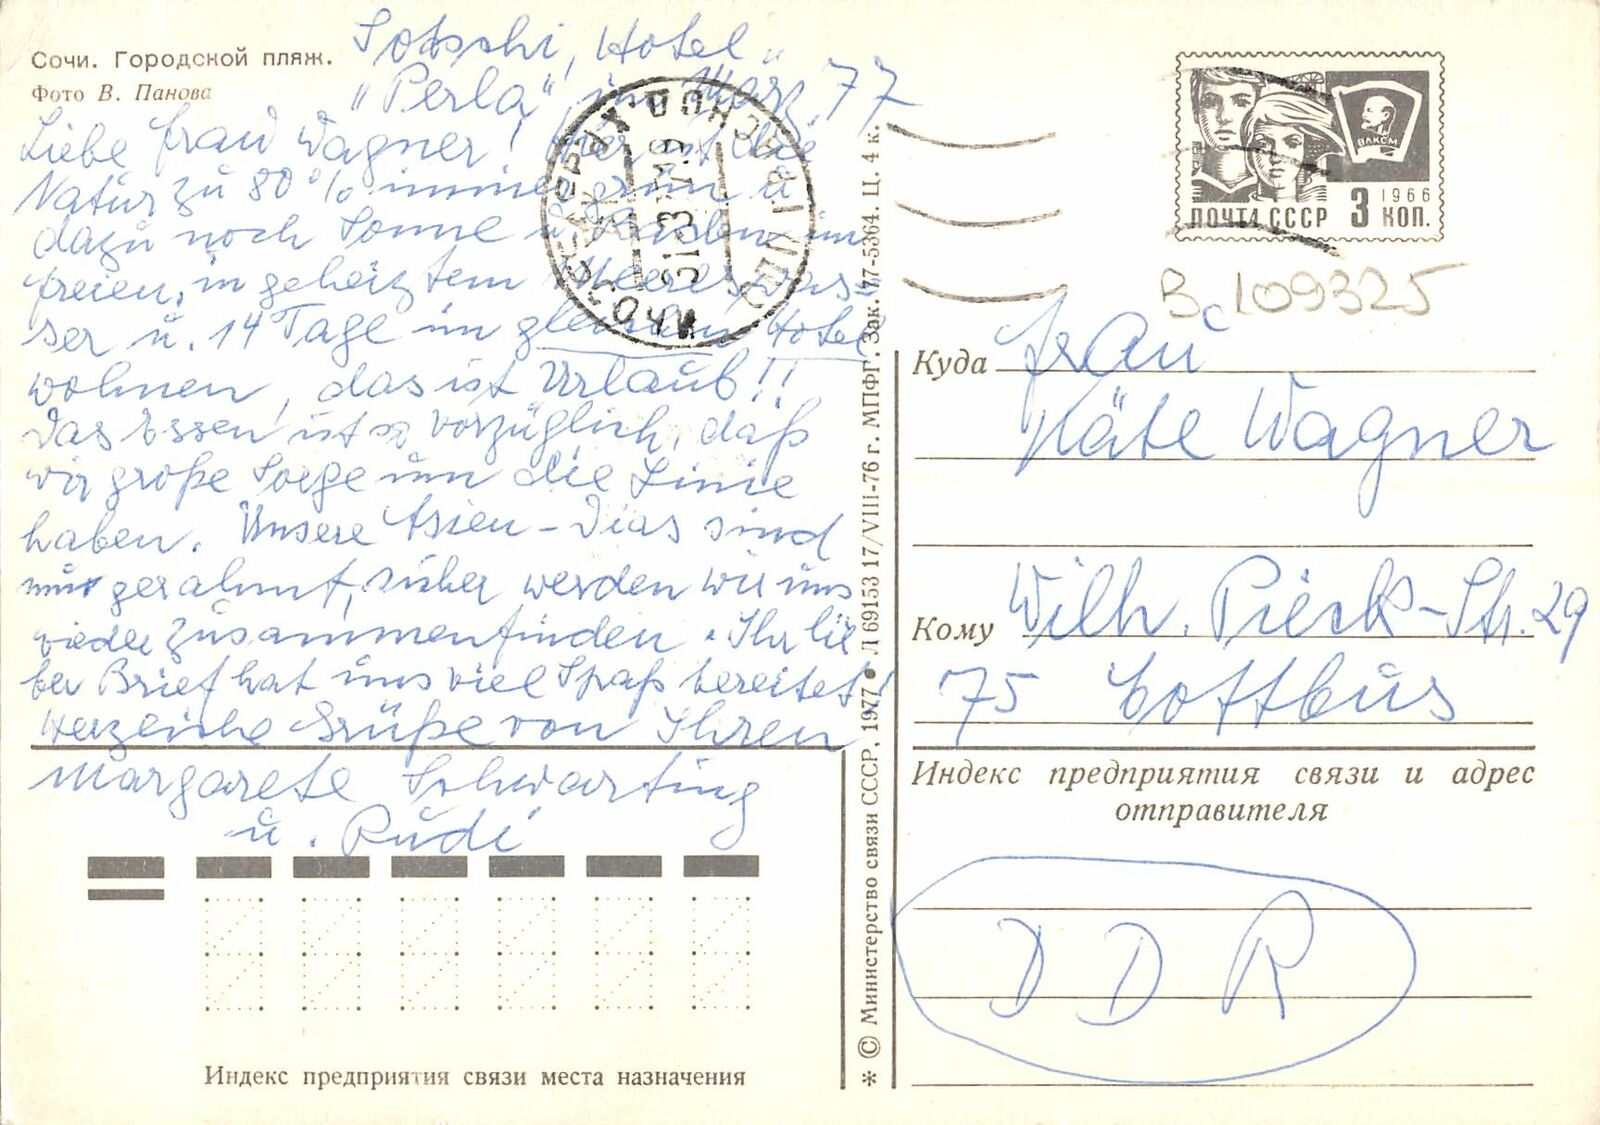 Сочи. Городской пляж.
Фото В. Панова
Sotschi, Hotel
"Perla", im März 77
Liebe Frau Wagner! Hier ist die
Natur zu 80% immergrün u.
dazu noch Sonne u. Baden im
freien, in geheiztem Meereswas-
ser u. 14 Tage im gleichen Hotel
wohnen, das ist Urlaub!!
Das Essen ist so vorzüglich, daß
wir große Sorge um die Linie
haben. Unsere Asien-Dias sind
nun gerahmt, sicher werden wir uns
wieder zusammenfinden. Ihr lie
ber Brief hat uns viel Spaß bereitet!
Herzliche Grüße von Ihren
Margarete Schwarting
u. Rudi
Индекс предприятия связи места назначения
* © Министерство связи СССР, 1977 ● Л 69153 17/VIII-76 г. МПФГ. Зак. 77-5364. Ц. 4 к.
ВЛКСМ
1966
ПОЧТА СССР 3 КОП.
Вс 109325
Куда Frau
Käte Wagner
Кому Wilh. Pieck-Str. 29
75 Cottbus
Индекс предприятия связи и адрес
отправителя
DDR